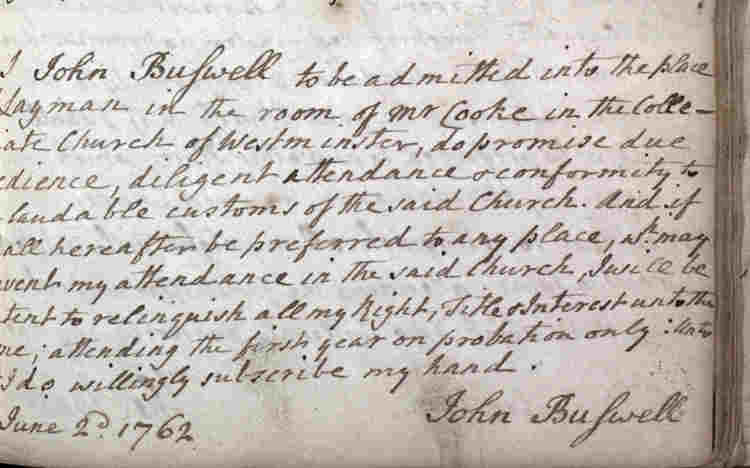 I John Buſwell to be admitted into the place
Layman in the room of Mr Cooke in the Colle-
iate Church of Westminster, do promise due
edience, diligent attendance & conformity to
laudable customs of the said Church. And if
all hereafter be preferred to any place, wh. may
event my attendance in the said Church, I will be
tent to relinquish all my Right, Title & Interest unto the
me; attending the first year on probation only: Unto
I do willingly subscribe my hand.
John Buſwell
June 2d. 1762